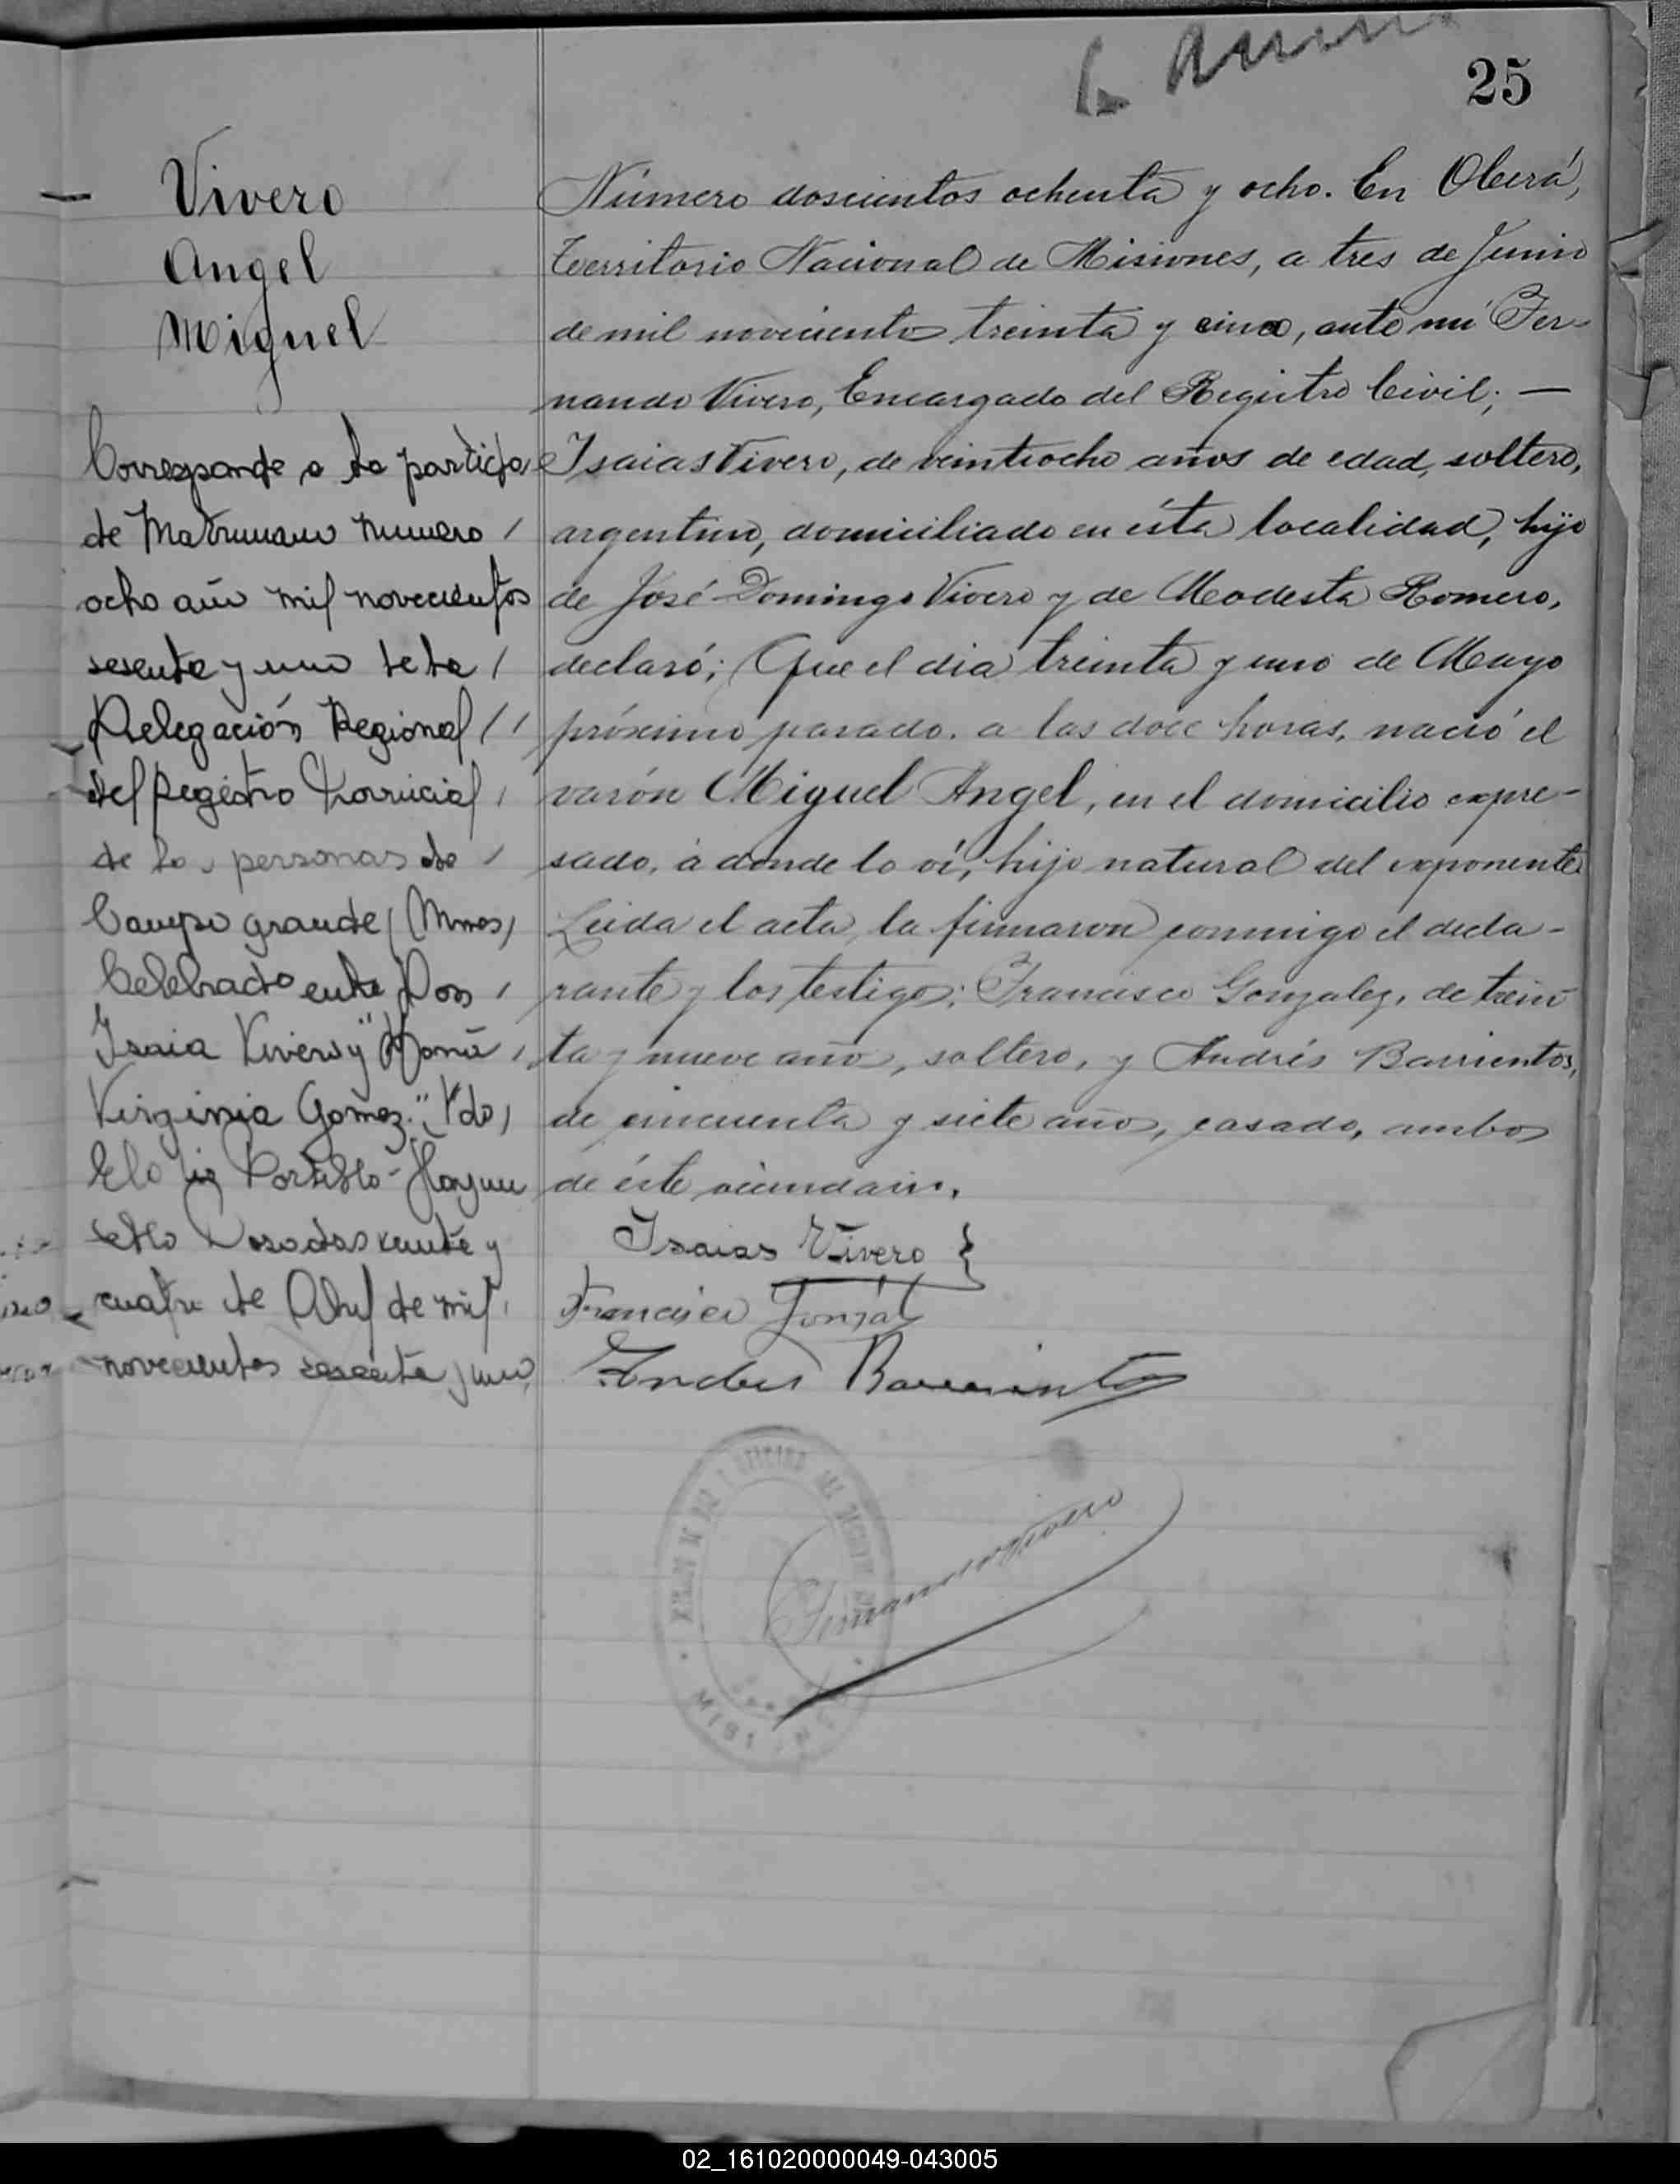 25
Vivero
Angel
Miguel
Número doscientos ochenta y ocho. En Oberá,
Territorio Nacional de Misiones, a tres de Junio
de mil novecientos treinta y cinco, ante mí Fer-
nando Vivero, Encargado del Registro Civil; —
Isaias Vivero, de veintiocho años de edad, soltero,
argentino, domiciliado en ésta localidad, hijo
de José Domingo Vivero y de Modesta Romero,
declaró; Que el dia treinta y uno de Mayo
próximo pasado, a las doce horas, nació el
varón Miguel Angel, en el domicilio expre-
sado, á donde lo ví, hijo natural del exponente
Leida el acta, la firmaron conmigo el decla-
rante y los testigos: Francisco Gonzalez, de trein
ta y nueve años, soltero, y Andrés Barrientos,
de cincuenta y siete años, casado, ambos
de éste vecindario.
Corresponde a la partida
de Matrimonio numero /
ocho año mil novecientos
sesenta y uno de la /
Delegación Regional //
del Registro Provincial
de las personas de /
Campo grande (Mnes)
Celebrado entre Don /
Isaia Vivero y "María
Virginia Gomez." Fdo)
Portillo-
Posadas veinte y
cuatro de Abril de mil
novecientos sesenta y uno
Isaias Vivero
Francisco Gonzal
Andres Barrientos
Fernando Vivero
02_161020000049-043005